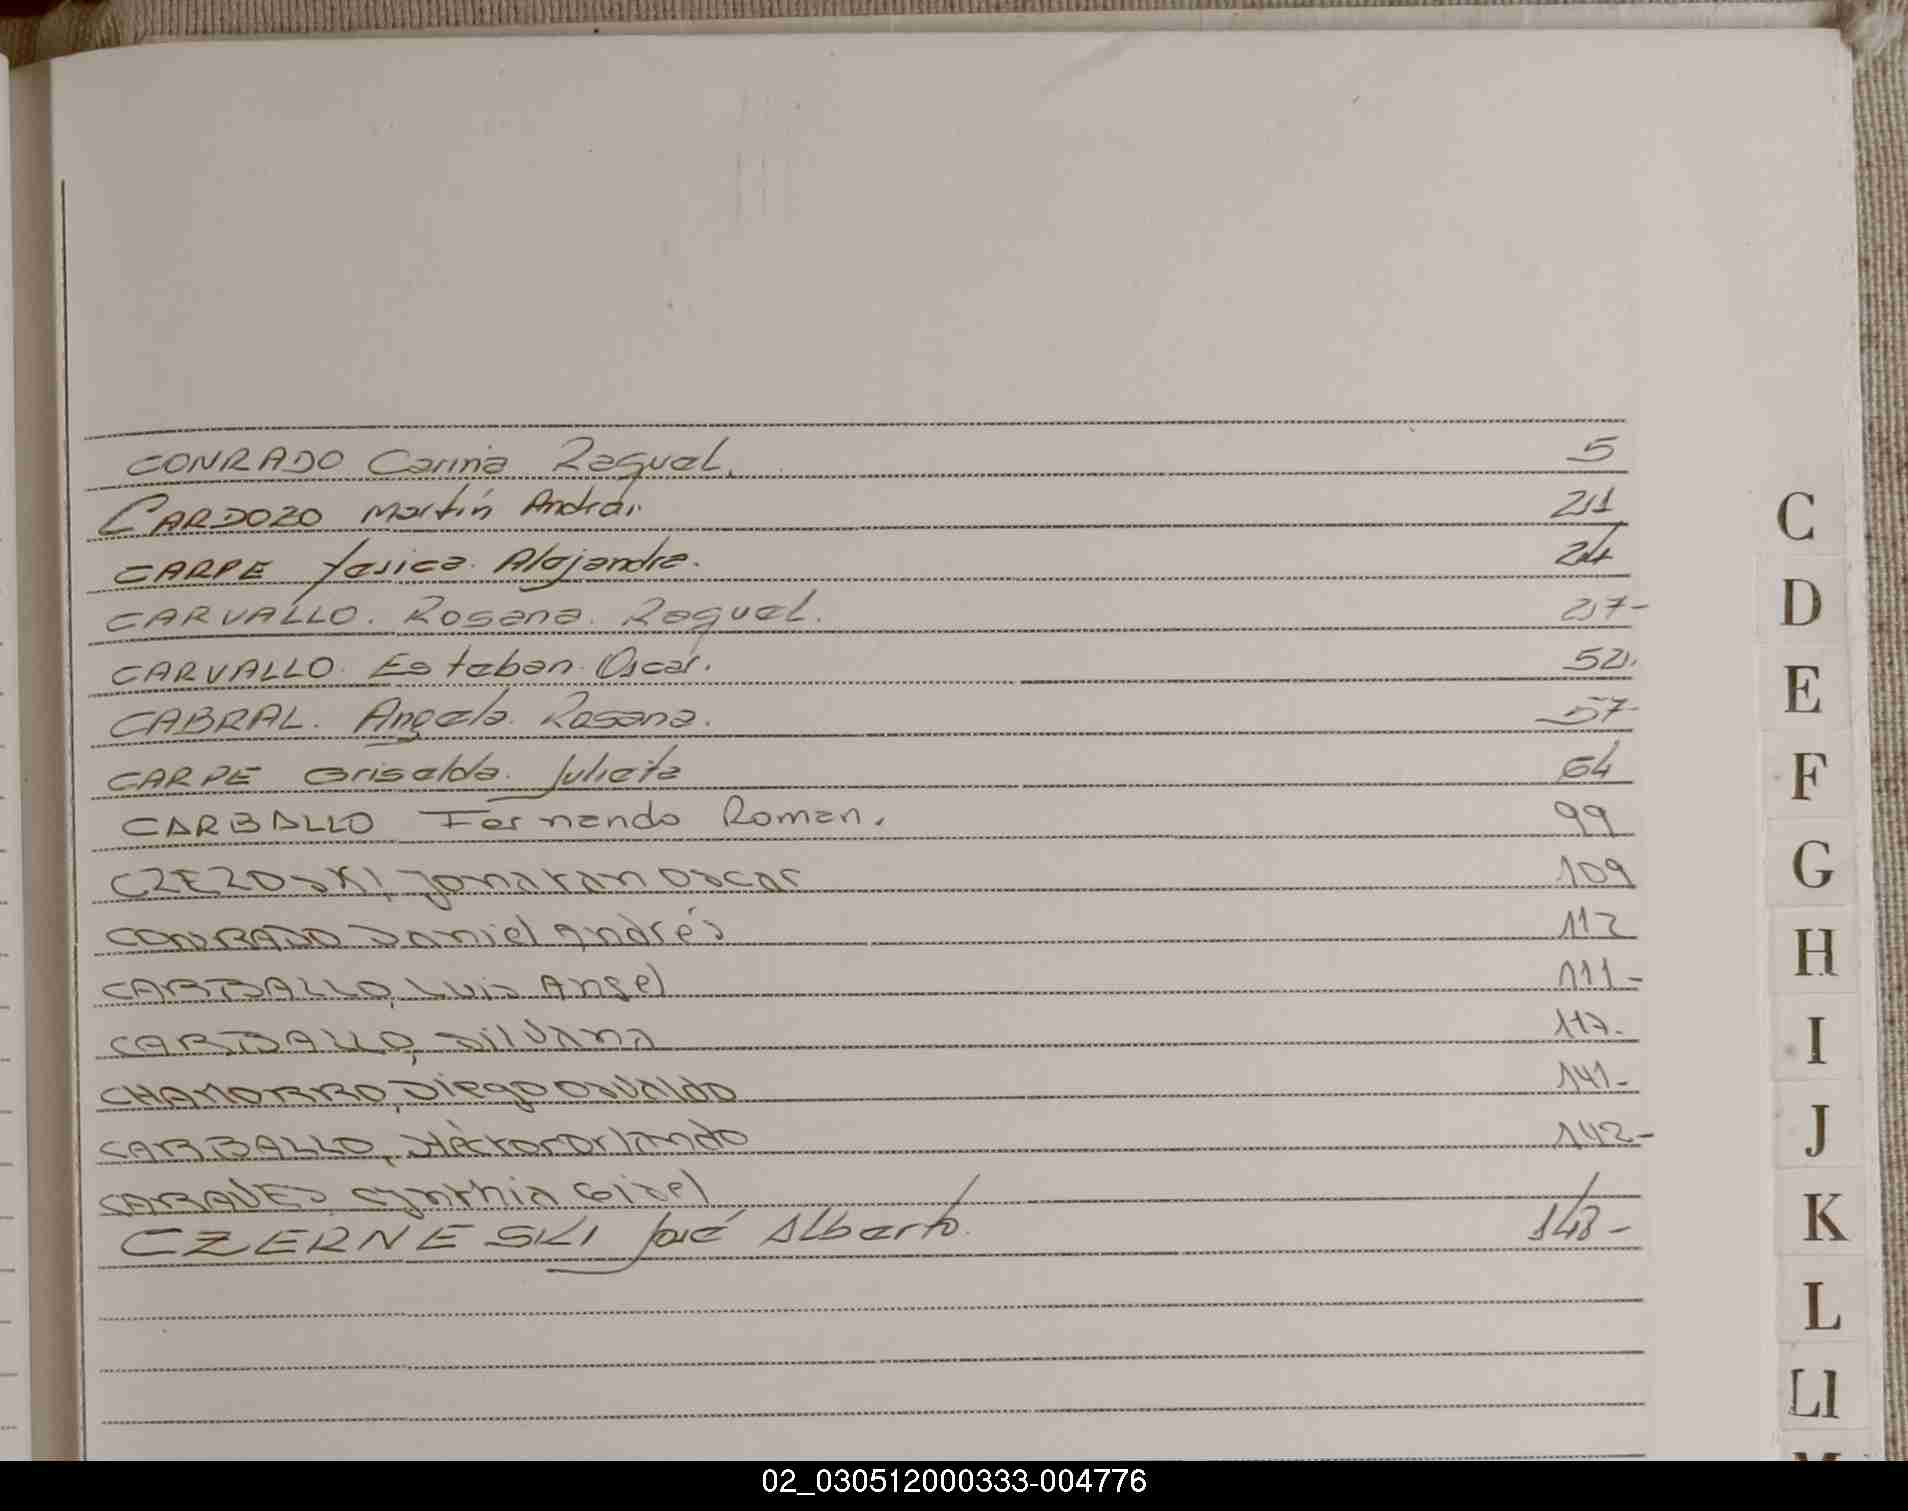 CONRADO Carina Raquel. 5
CARDOZO Martín Andrés. 21
CARPE Yesica. Alejandra. 24
CARVALLO. Rosana. Raquel. 27-
CARVALLO. Esteban. Oscar. 52.
CABRAL. Angela. Rosana. 57-
CARPE Griselda. Julieta 64
CARBALLO Fernando Roman. 99
CZEZOSKI, Jonatan Oscar 109
CONRADO Daniel Andrés 112
CARBALLO, Luis Angel 111-
CARBALLO, Silvana 117.
CHAMORRO, Diego Osvaldo 141-
CARBALLO, Héctor Orlando 142-
Cynthia Gisel
CZERNESKI José Alberto. 148-
C
D
E
F
G
H
I
J
K
L
Ll
02_030512000333-004776